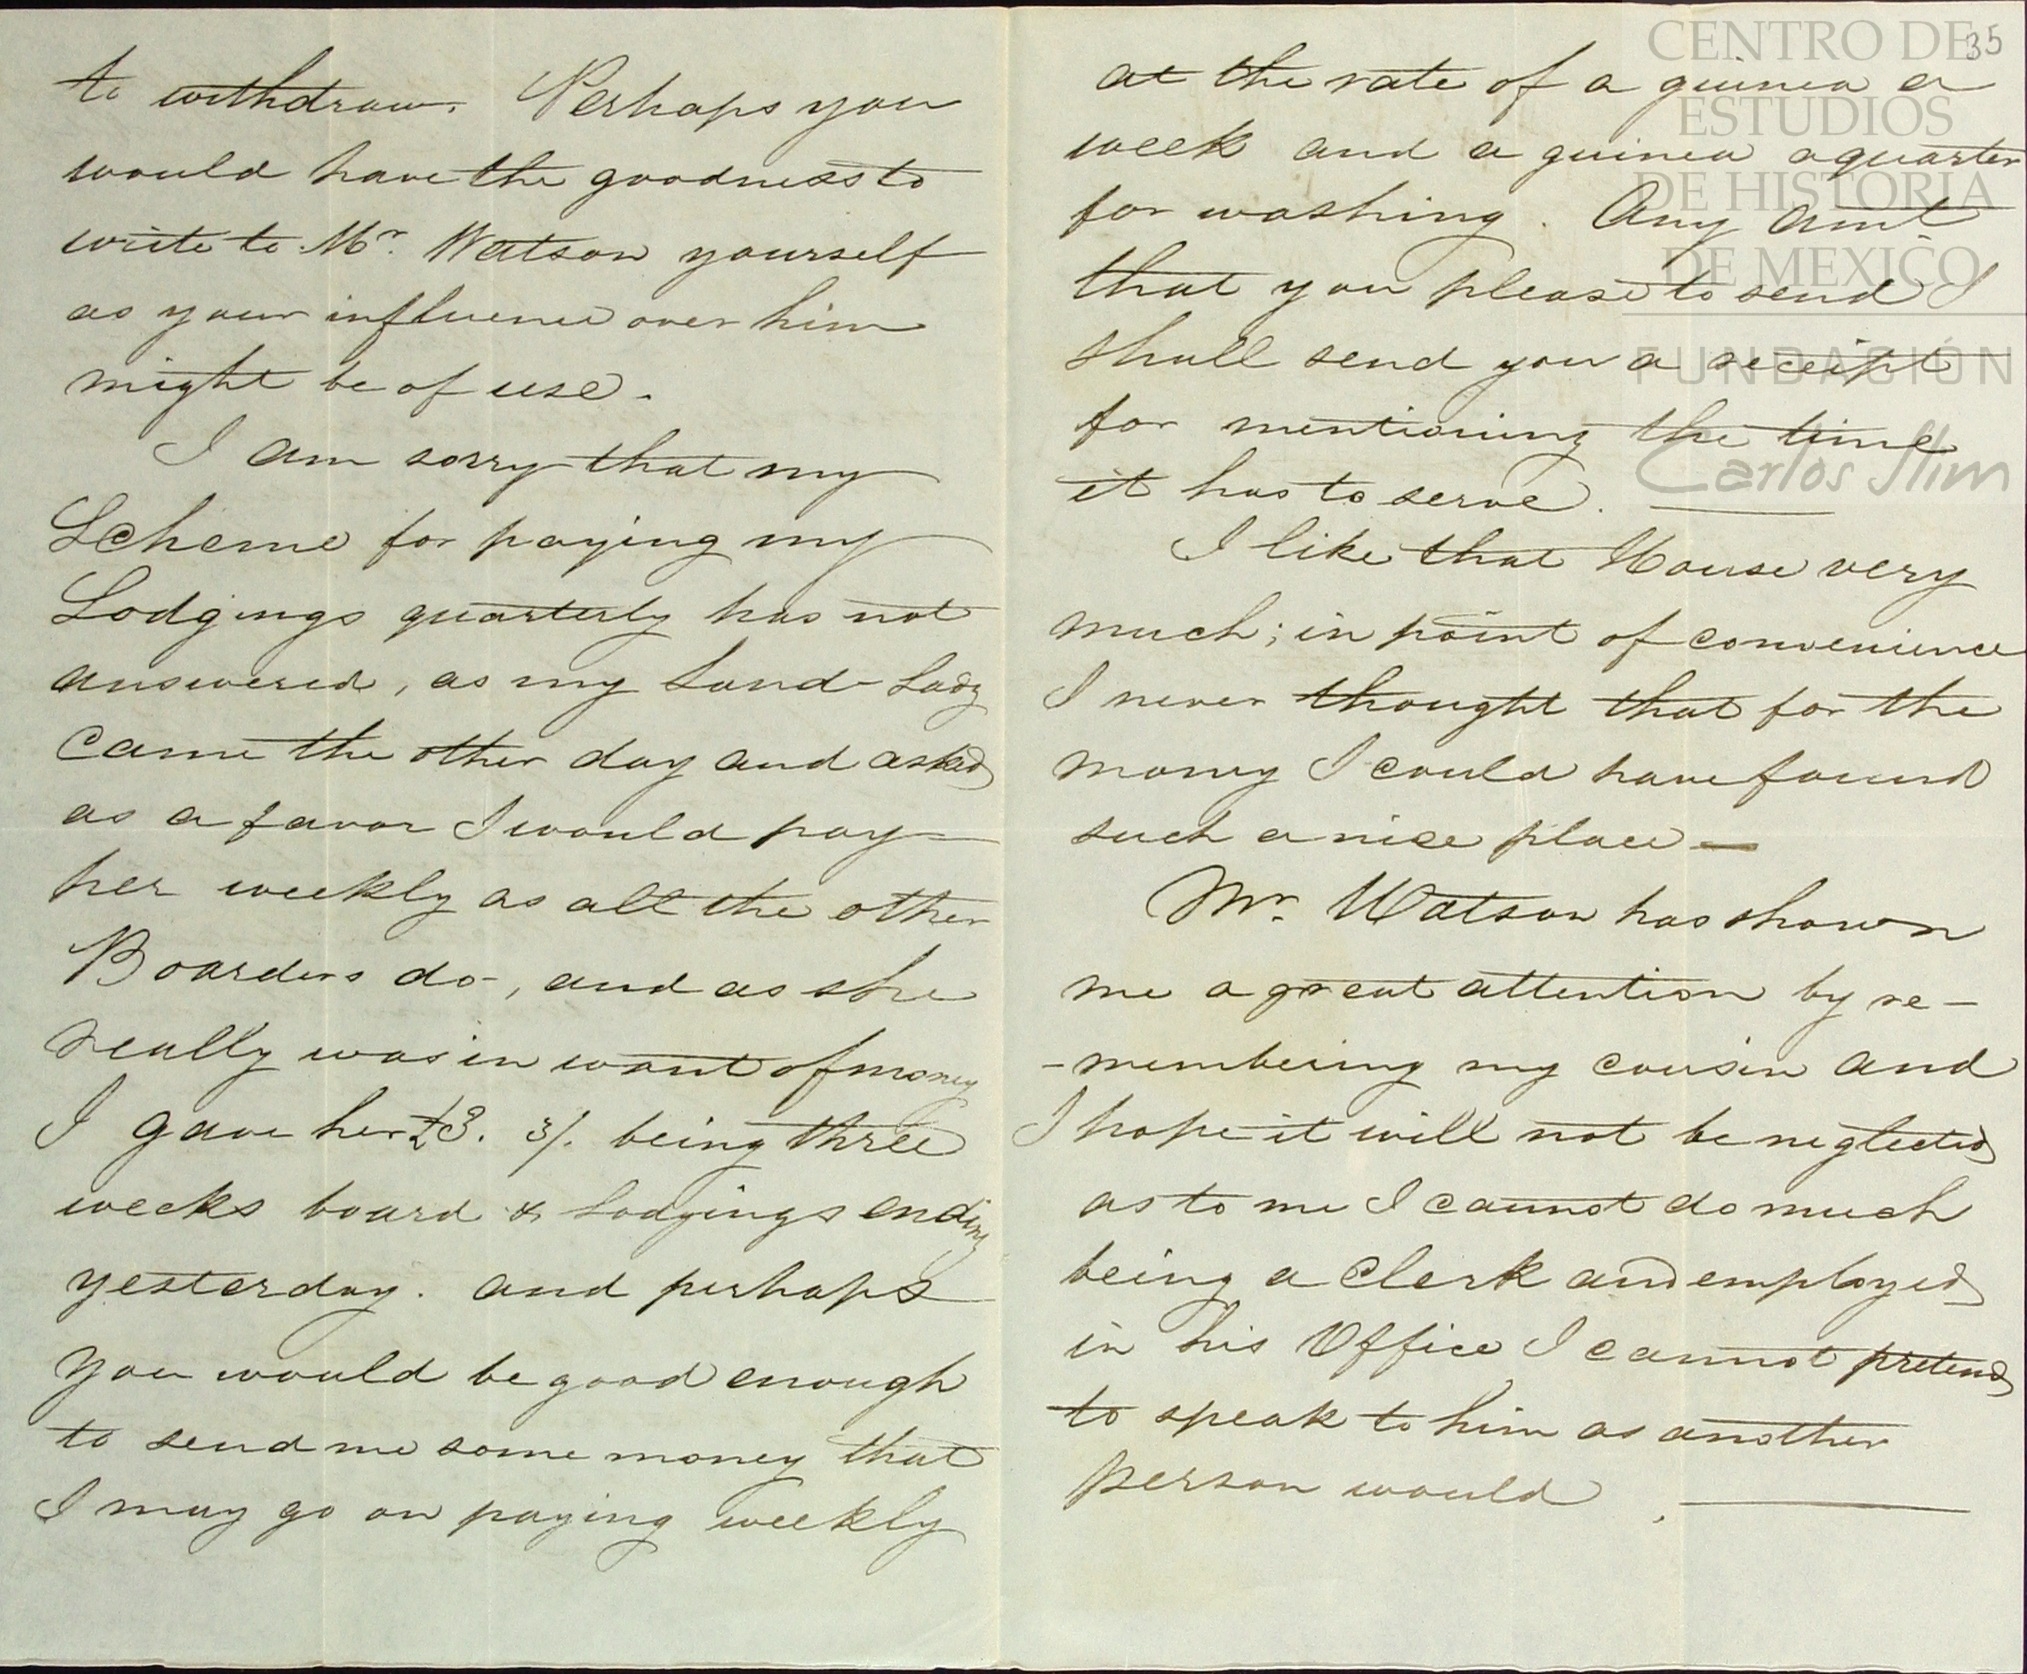 to withdraw. Perhaps you
would have the goodness to
write to Mr. Watson yourself
as your influence over him
might be of use.
I am sorry that my
Scheme for paying my
Lodgings quarterly has not
answered, as my Land-Lady
came the other day and asked
as a favor I would pay
her weekly as all the other
Boarders do-, and as she
really was in want of money
I gave her £3. 3/. being three
weeks board & Lodgings ending
yesterday. and perhaps
you would be good enough
to send me some money that
I may go on paying weekly
35
at the rate of a guinea a
week and a guinea a quarter
for washing. Any amt
that you please to send I
shall send you a receipt
for mentioning the time
it has to serve.
I like that House very
much; in point of convenience
I never thought that for the
money I could have found
such a nice place —
Mr. Watson has shown
me a great attention by re-
-membering my cousin and
I hope it will not be neglected
as to me I cannot do much
being a Clerk and employed
in his Office I cannot pretend
to speak to him as another
person would.
CENTRO DE
ESTUDIOS
DE HISTORIA
DE MEXICO
FUNDACIÓN
Carlos Slim